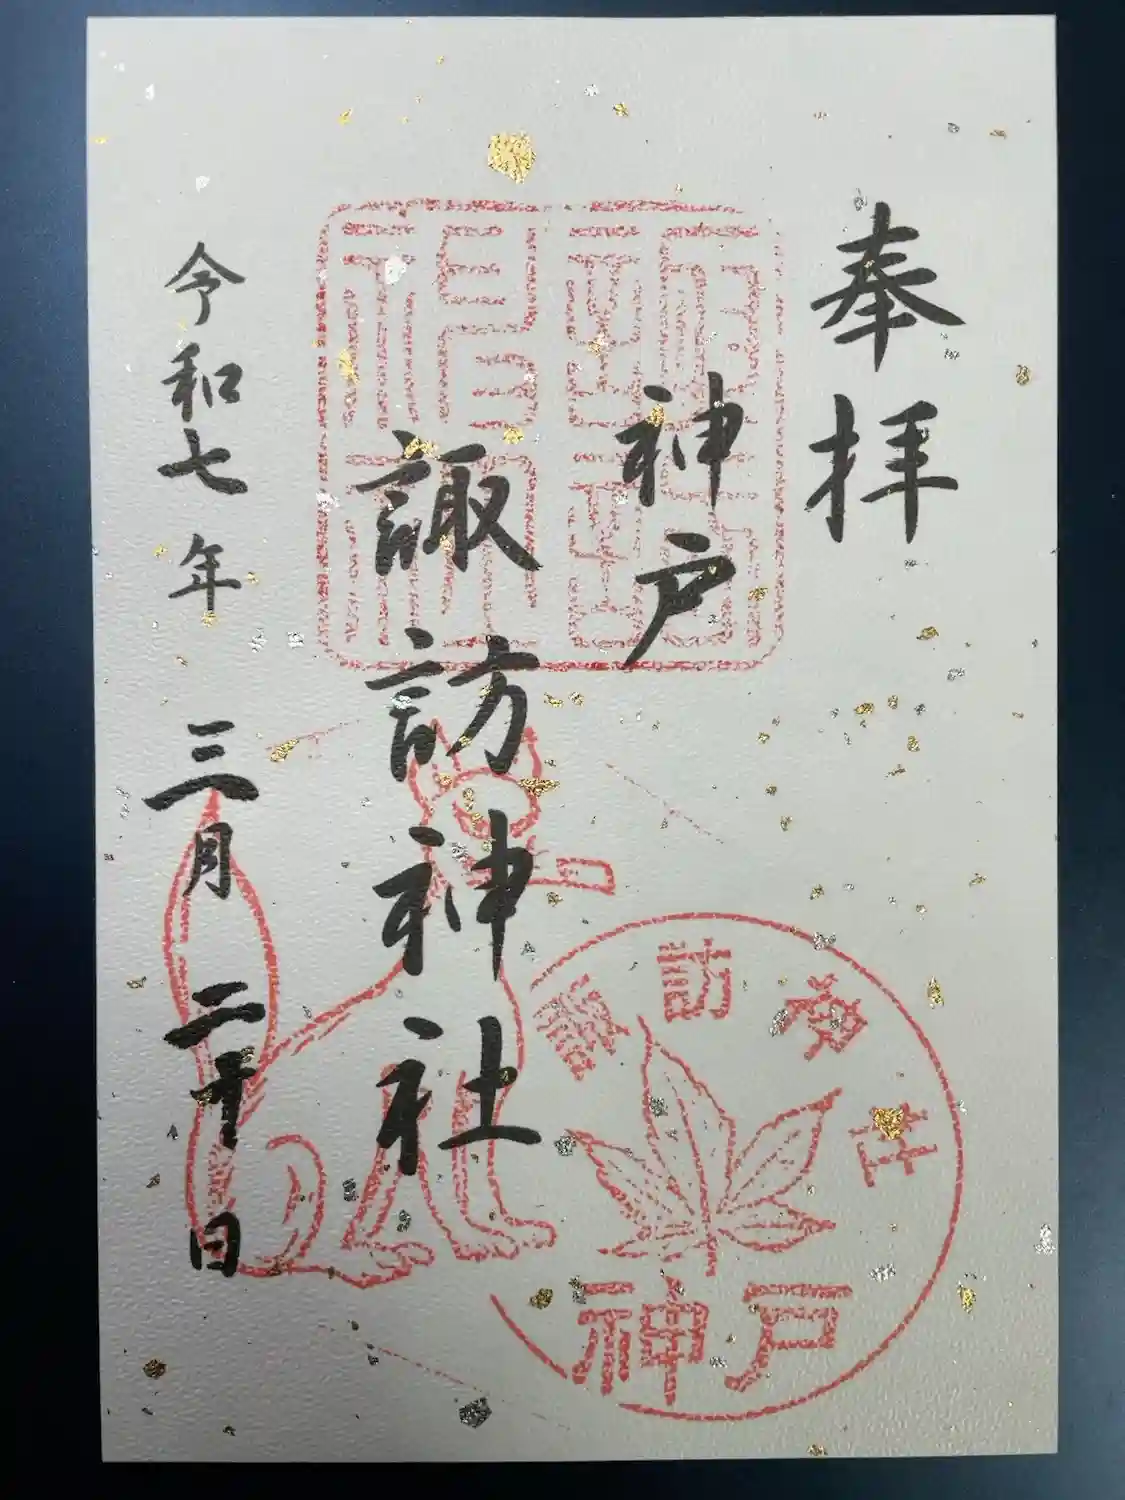 奉拝
神戸
諏訪神社
令和七年三月二十日
諏訪神社
神戸